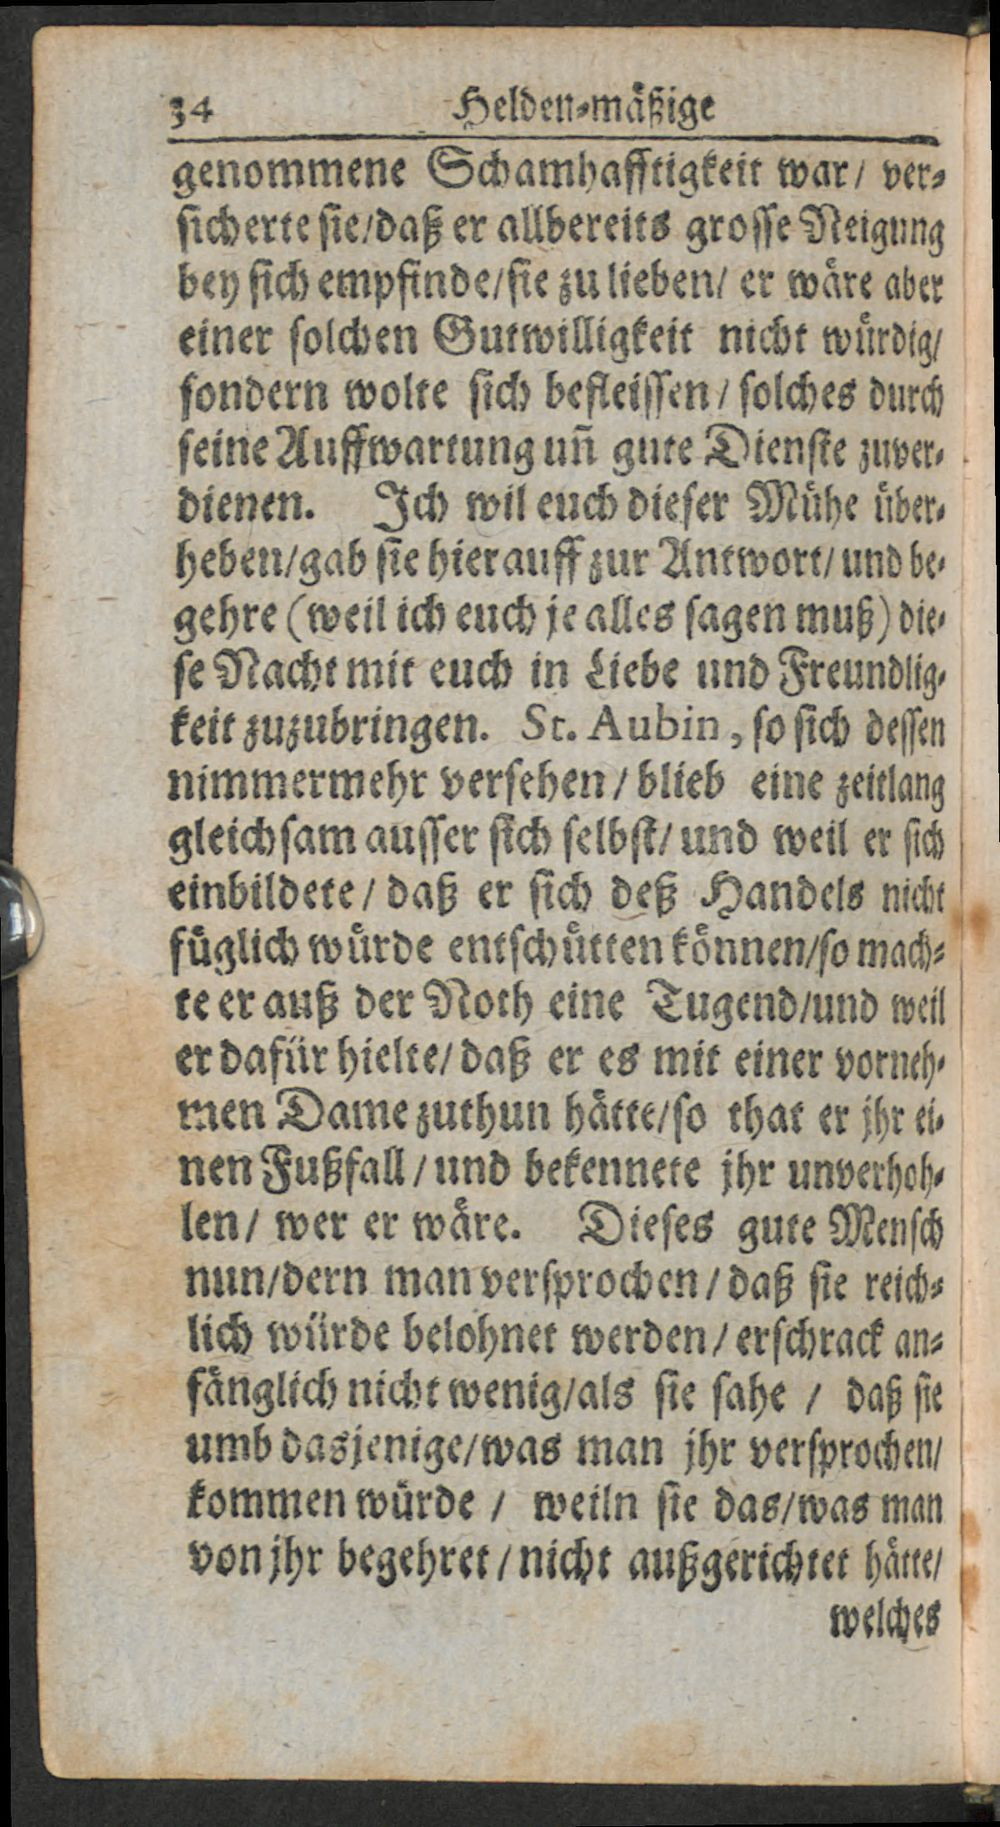 34 Helden-mäßige
genommene Schamhafftigkeit war/ ver-
sicherte sie/daß er allbereits grosse Neigung
bey sich empfinde/sie zu lieben/ er wäre aber
einer solchen Gutwilligkeit nicht würdig/
sondern wolte sich befleissen/ solches durch
seine Auffwartung uñ gute Dienste zuver-
dienen. Ich wil euch dieser Mühe über-
heben/gab sie hierauff zur Antwort/ und be-
gehre (weil ich euch je alles sagen muß) die-
se Nacht mit euch in Liebe und Freundlig-
keit zuzubringen. St. Aubin, so sich dessen
nimmermehr versehen/ blieb eine zeitlang
gleichsam ausser sich selbst/ und weil er sich
einbildete/ daß er sich deß Handels nicht
füglich würde entschütten können/so mach-
te er auß der Noth eine Tugend/und weil
er dafür hielte/ daß er es mit einer vorneh-
men Dame zuthun hätte/so that er jhr ei-
nen Fußfall/ und bekennete jhr unverhoh-
len/ wer er wäre. Dieses gute Mensch
nun/dern man versprochen/ daß sie reich-
lich würde belohnet werden/ erschrack an-
fänglich nicht wenig/als sie sahe / daß sie
umb dasjenige/was man jhr versprochen/
kommen würde / weiln sie das/was man
von jhr begehret/ nicht außgerichtet hätte/
welches